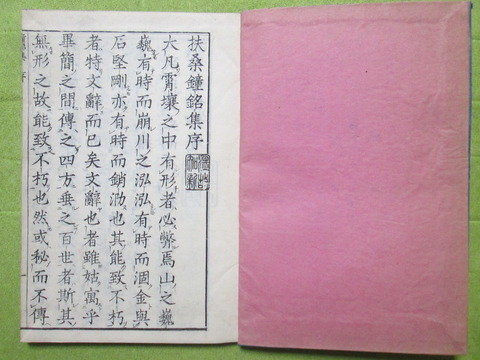 扶桑鐘銘集序
大凡霄壤之中有形者必弊焉山之巍
巍有時而崩川之泓泓有時而涸金與
石堅剛亦有時而銷泐也其能致不朽
者特文辭而已矣文辭也者雖姑寓乎
畢簡之間傳之四方垂之百世者斯其
無形之故能致不朽也然或秘而不傳